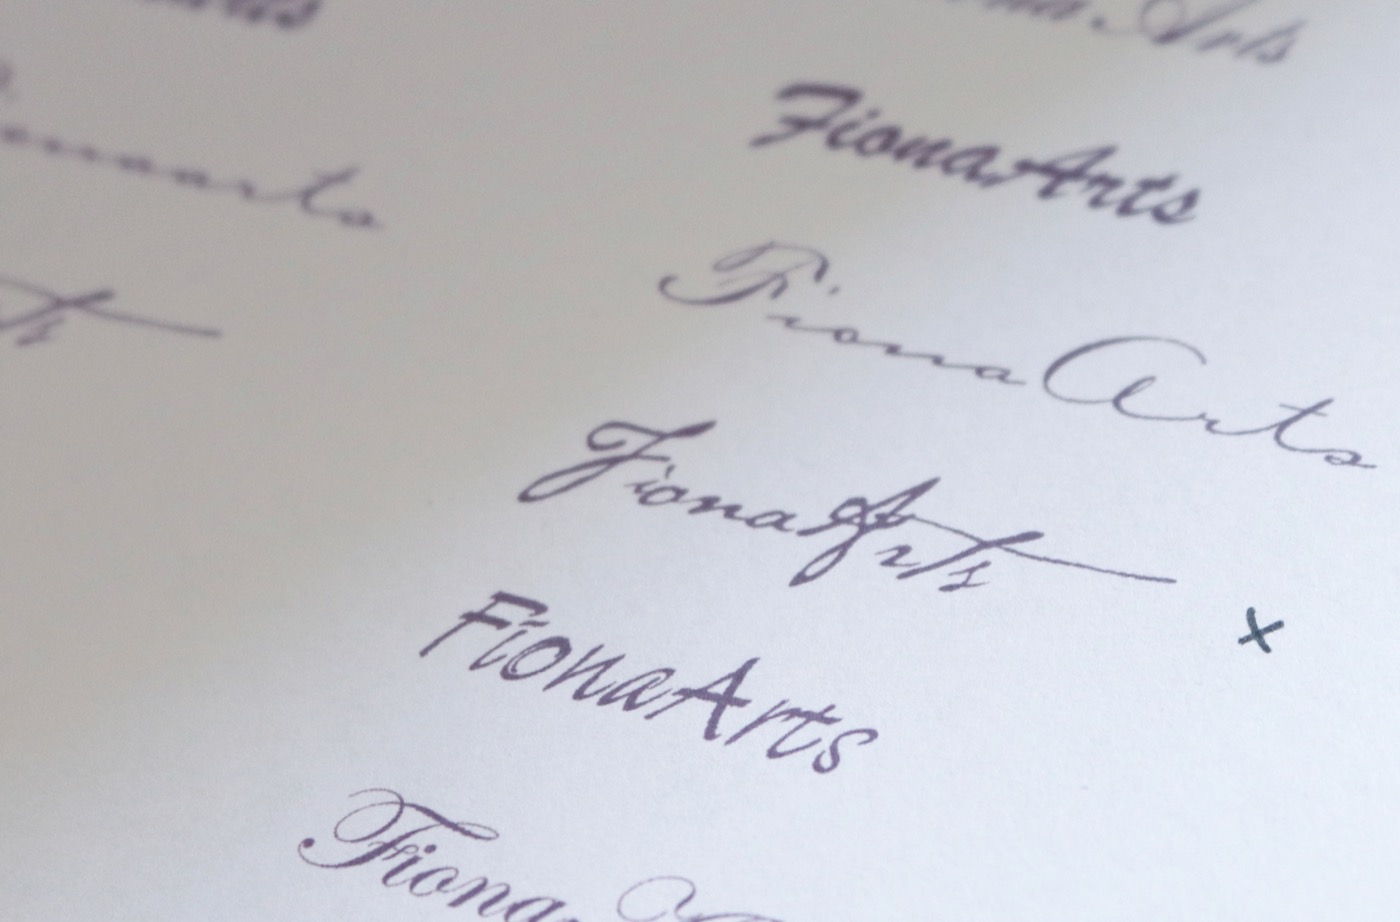 Arts
FionaArts
FionaArts
FionaArts
x
FionaArts
Fiona